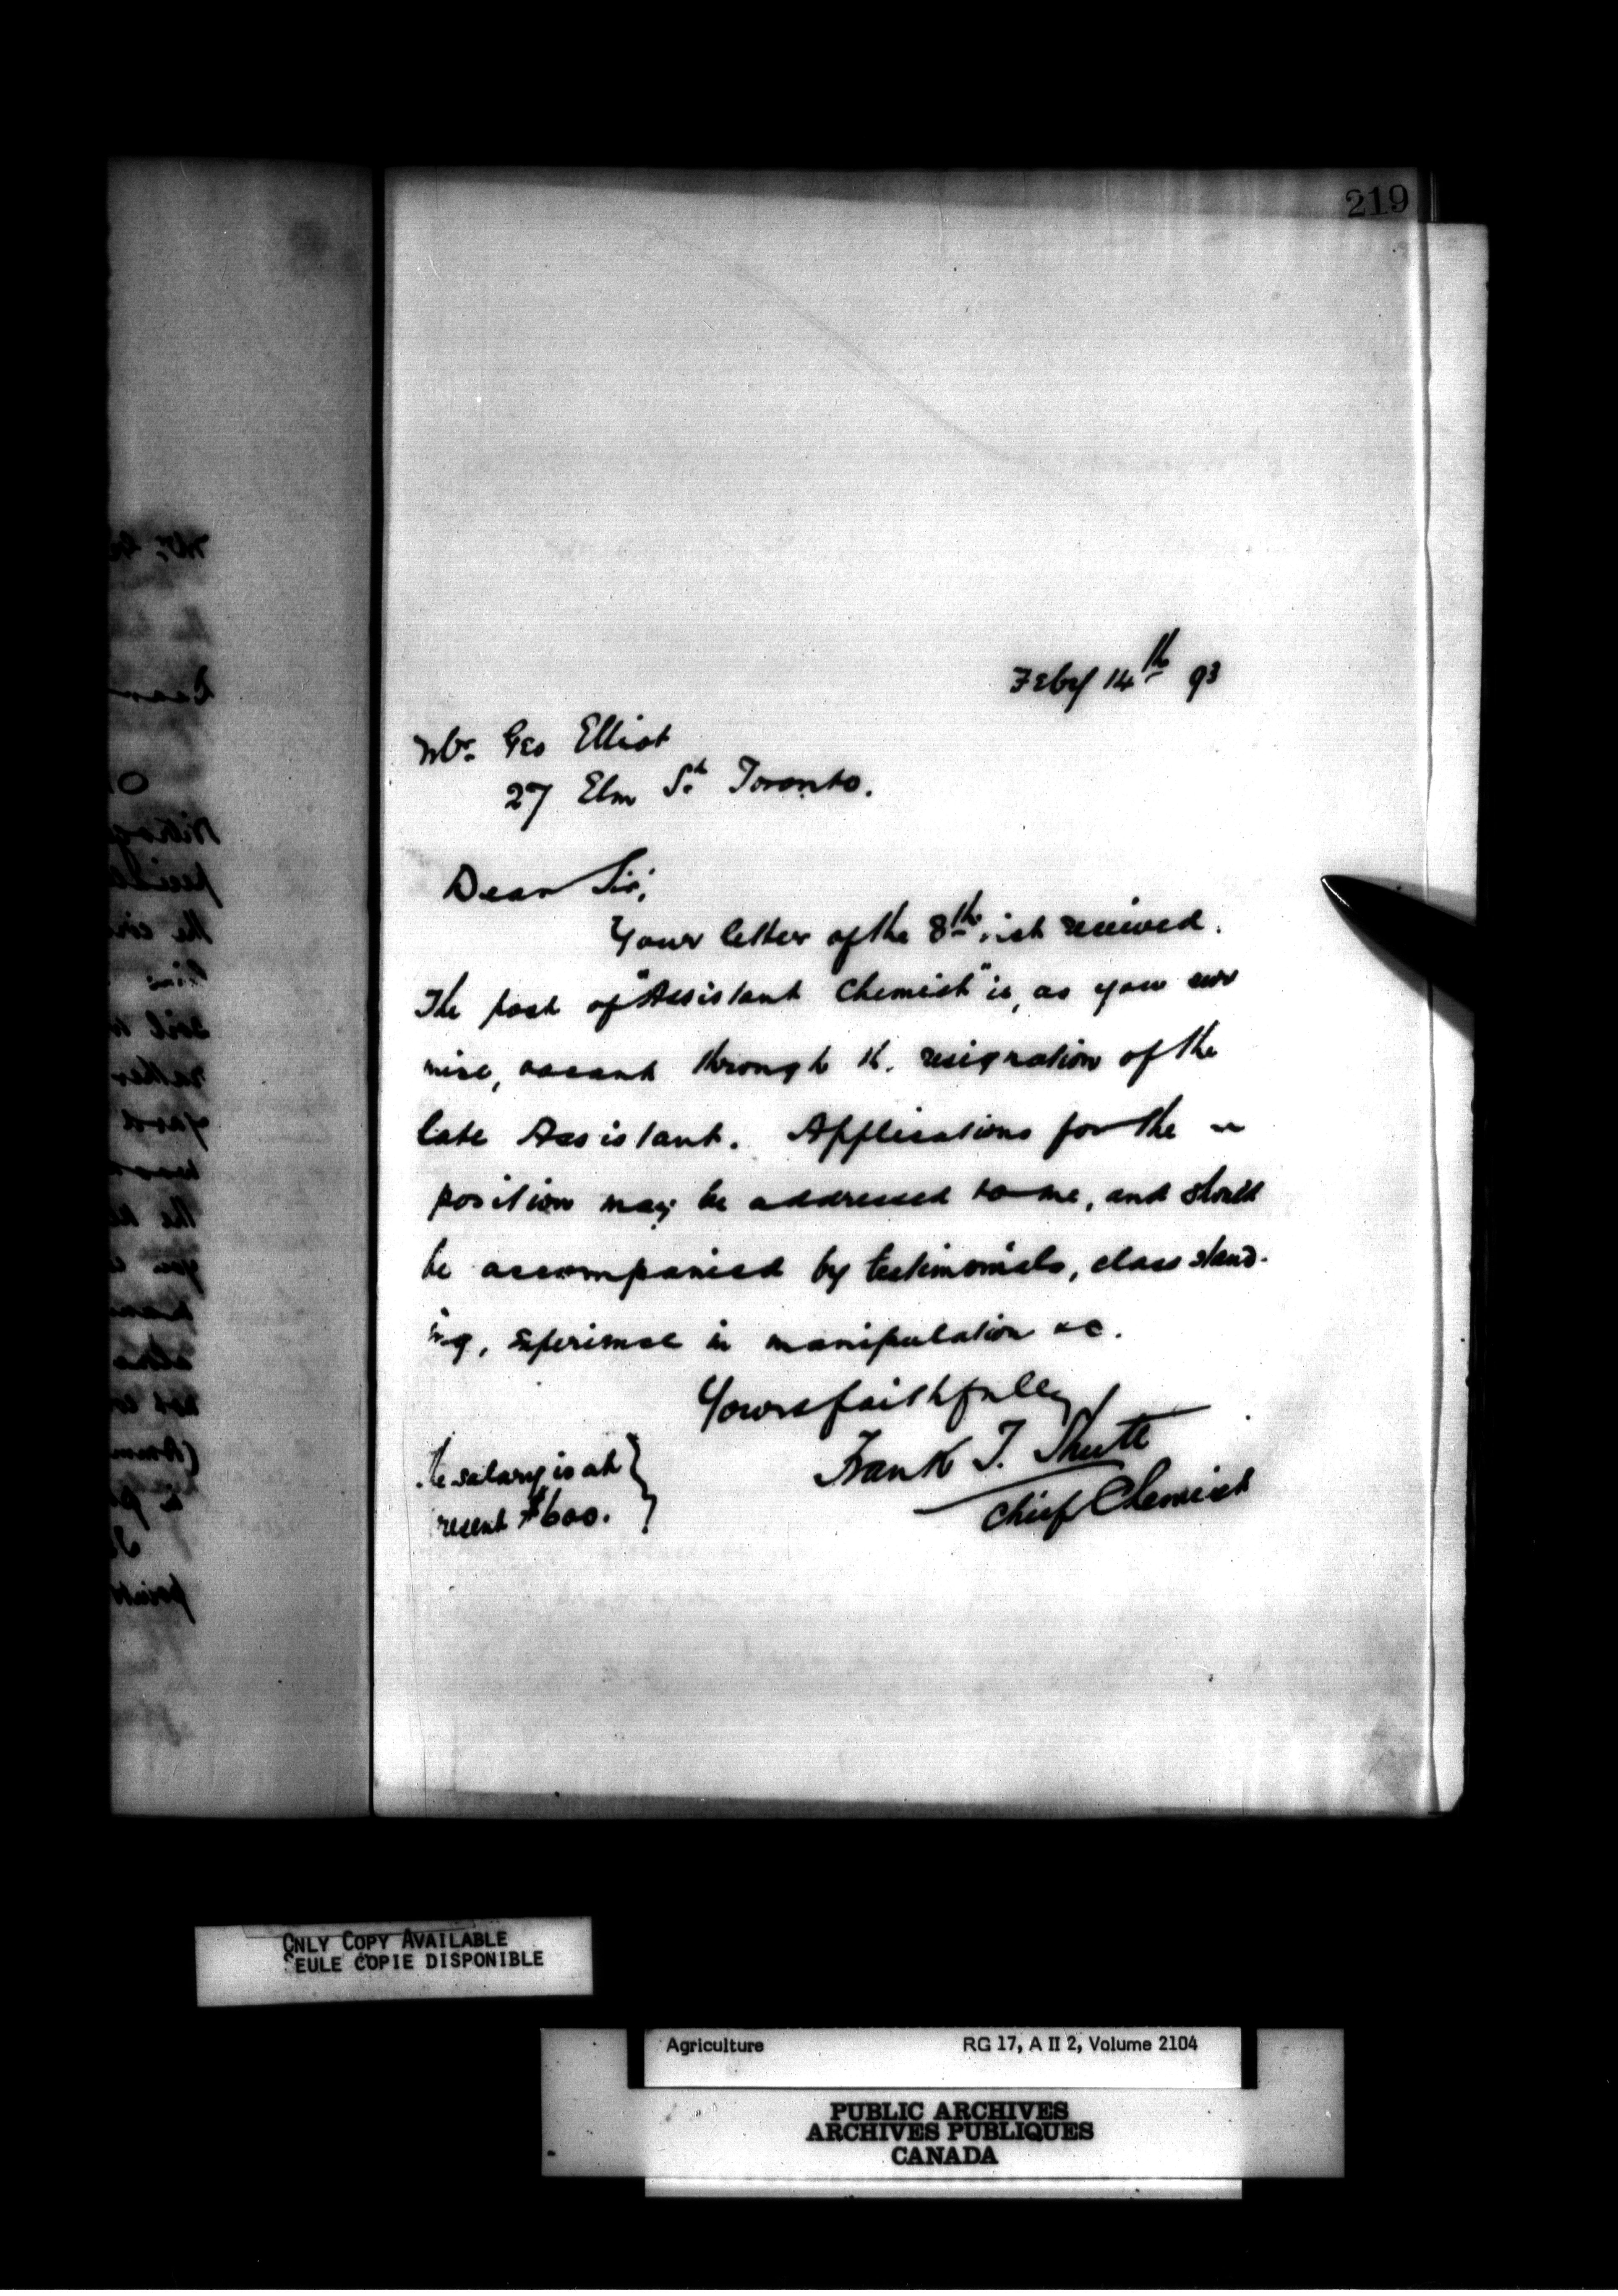 219
Feby 14th 93
Mr. Geo Elliot
27 Elm St. Toronto.
Dear Sir;
Your letter of the 8th. inst received.
The post of "Assistant Chemist" is, as you sur
mise, vacant through th. resignation of the
late Assistant. Applications for the
position may be addressed to me, and should
be accompanied by testimonials, class stand-
ing, experience in manipulation &c.
Yours faithfully
Frank T. Shutt
Chief Chemist
he salary is at
resent $600.
ONLY COPY AVAILABLE
SEULE COPIE DISPONIBLE
Agriculture RG 17, A II 2, Volume 2104
PUBLIC ARCHIVES
ARCHIVES PUBLIQUES
CANADA